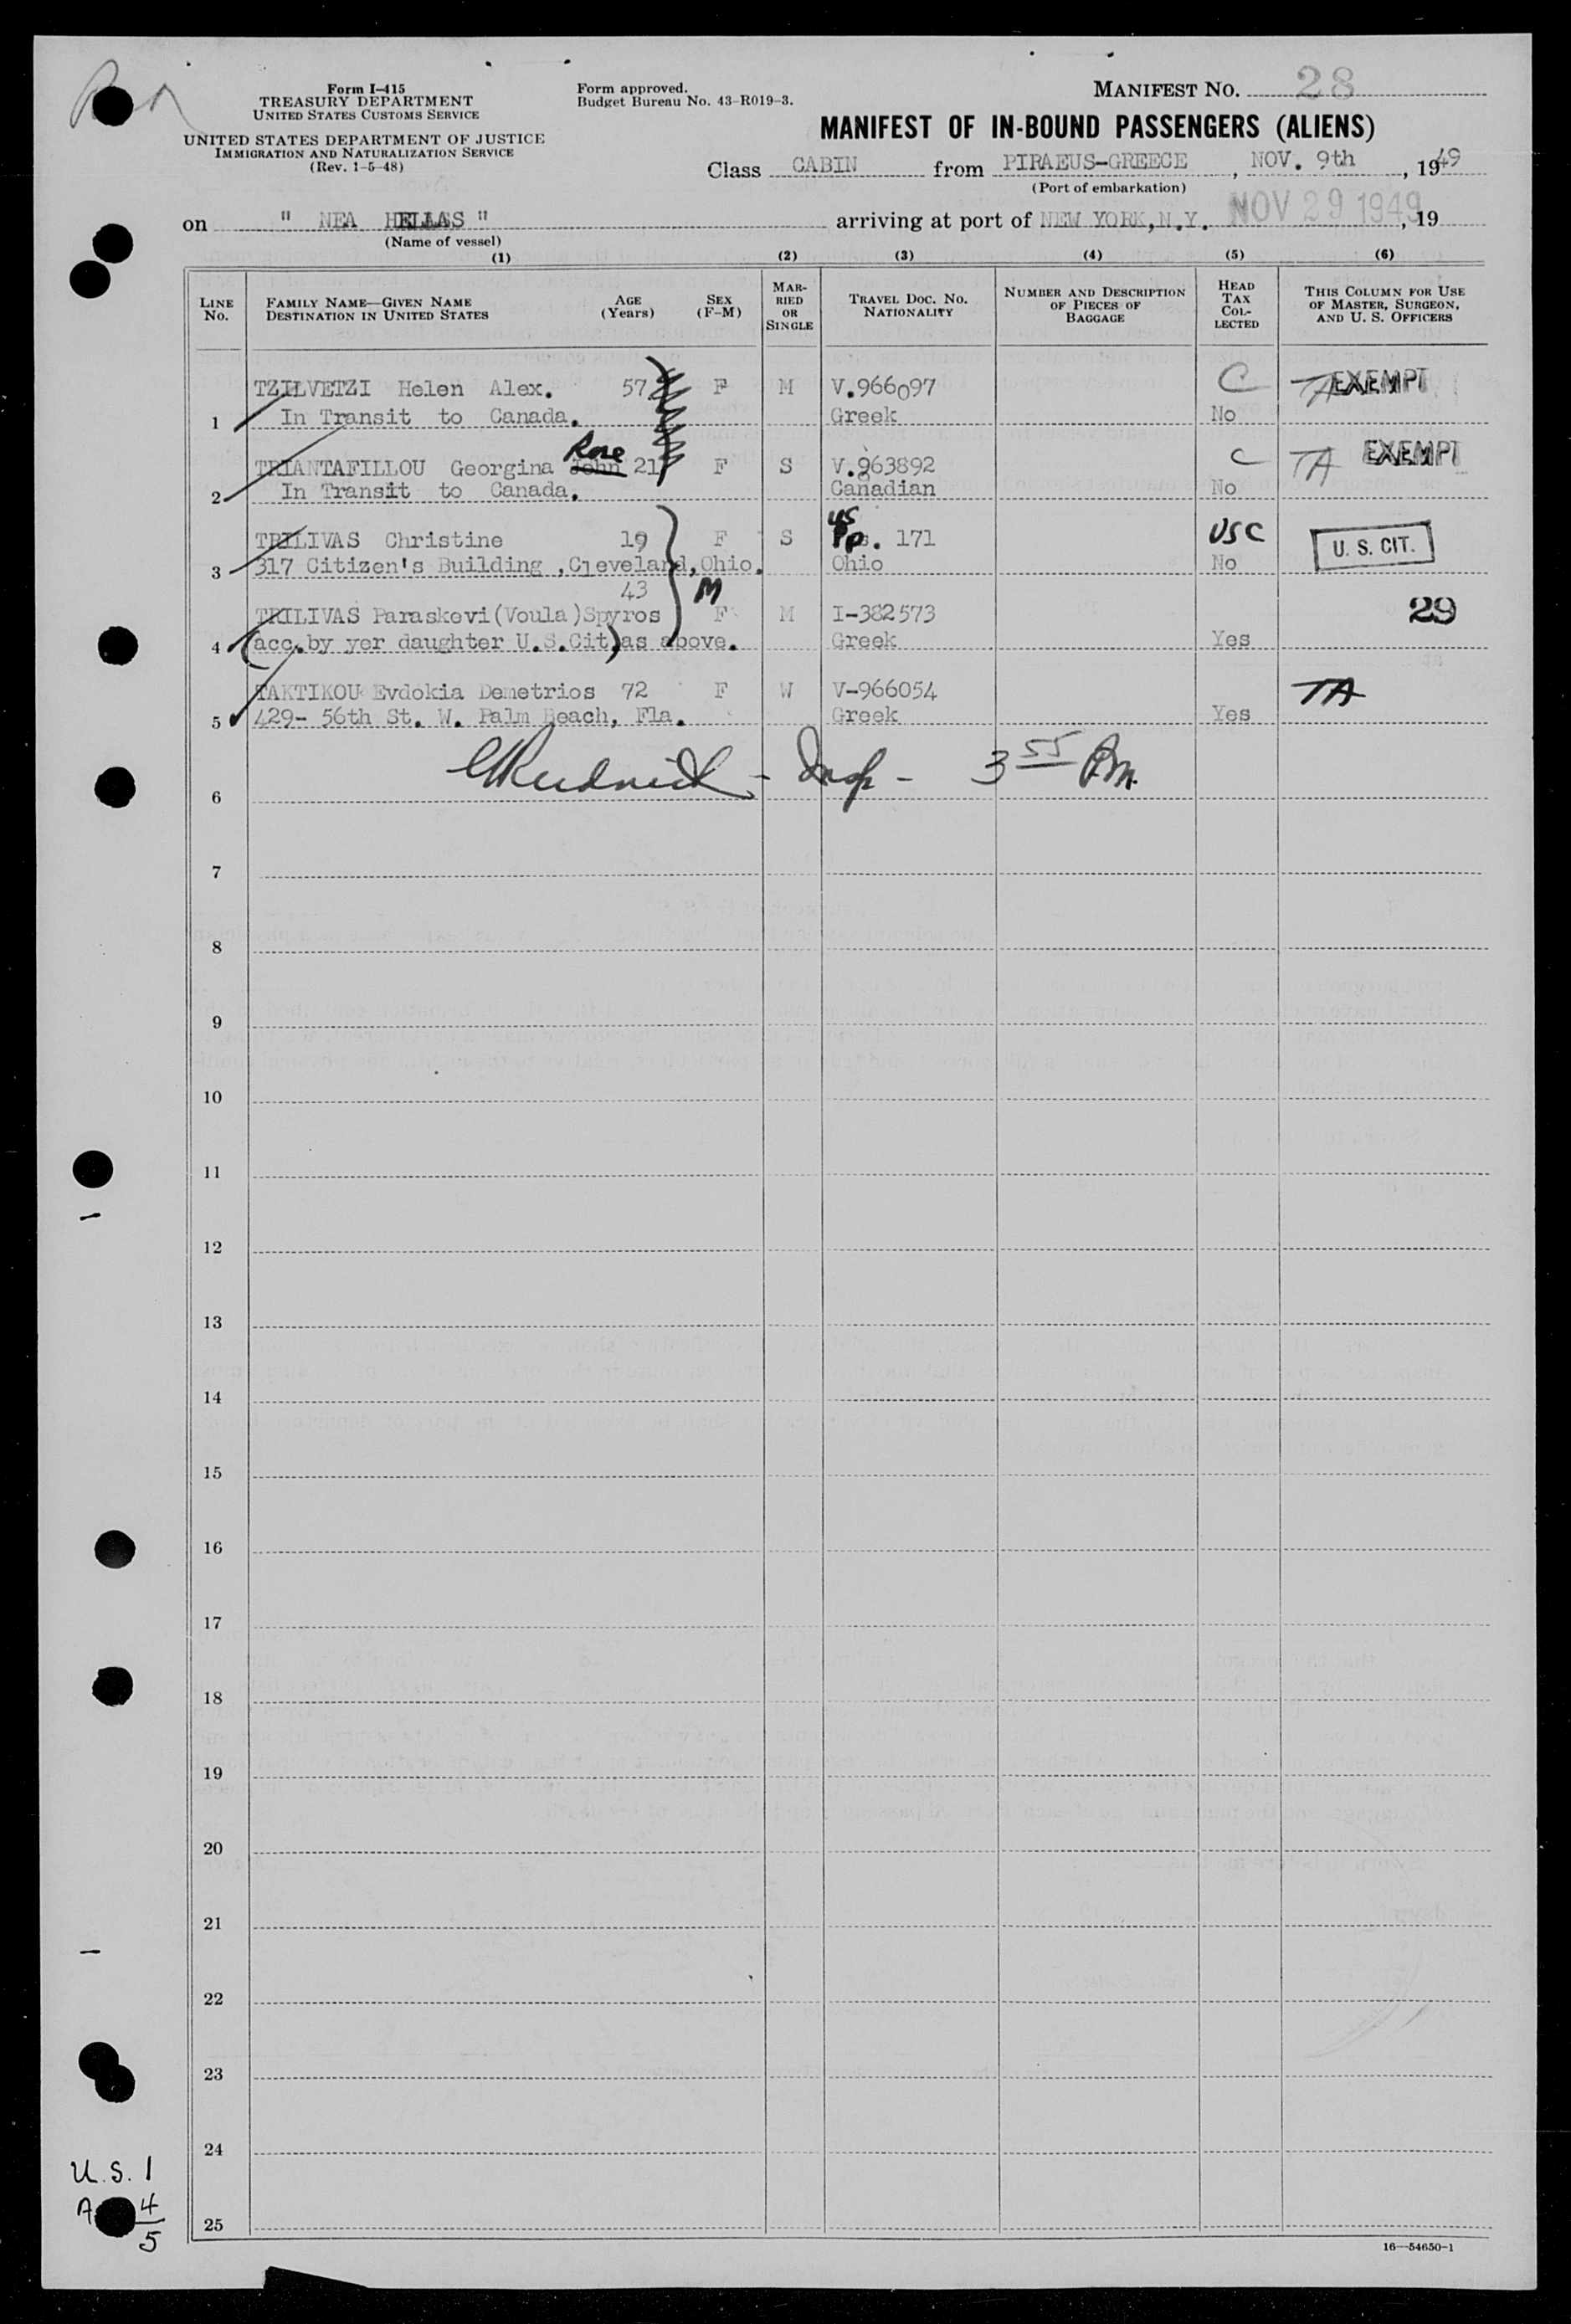 Form I-415
TREASURY DEPARTMENT
UNITED STATES CUSTOMS SERVICE
UNITED STATES DEPARTMENT OF JUSTICE
IMMIGRATION AND NATURALIZATION SERVICE
(Rev. 1-5-48)
Form approved.
Budget Bureau No. 43-R019-3.
MANIFEST NO. 28
MANIFEST OF IN-BOUND PASSENGERS (ALIENS)
Class CABIN from PIRAEUS-GREECE, NOV. 9th, 1949
(Port of embarkation)
on " NEA HELLAS " arriving at port of NEW YORK, N.Y. NOV 29 1949, 19
(Name of vessel)
(1) (2) (3) (4) (5) (6)
LINE No. FAMILY NAME—GIVEN NAME DESTINATION IN UNITED STATES AGE (Years) SEX (F-M) MARRIED OR SINGLE TRAVEL DOC. NO. NATIONALITY NUMBER AND DESCRIPTION OF PIECES OF BAGGAGE HEAD TAX COLLECTED THIS COLUMN FOR USE OF MASTER, SURGEON, AND U. S. OFFICERS
TZILVETZI Helen Alex. 57 F M V.966097 C TA EXEMPT
1 In Transit to Canada. Greek No
Rose
TRIANTAFILLOU Georgina John 21 F S V.963892 C TA EXEMPT
2 In Transit to Canada. Canadian No
US
TRILIVAS Christine 19 F S Pp. 171 USC U. S. CIT.
3 317 Citizen's Building ,Cleveland, Ohio. Ohio No
43 M
TRILIVAS Paraskevi(Voula)Spyros F M I-382573 29
4 (acc.by yer daughter U.S.Cit)as above. Greek Yes
TAKTIKOU Evdokia Demetrios 72 F W V-966054 TA
5 429- 56th St. W. Palm Beach, Fla. Greek Yes
Rudnick - Insp - 3 55 Pm.
6
7
8
9
10
11
12
13
14
15
16
17
18
19
20
21
22
23
24
25
U.S. 1
A 4
5
16—54650-1